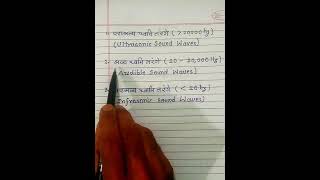 1. पराश्रव्य ध्वनि तरंगे ( > 20000 Hz )
(Ultrasonic Sound Waves)
2. श्रव्य ध्वनि तरंगे ( 20 - 20,000 Hz )
(Audible Sound Waves)
ध्वनि तरंगे ( < 20 Hz )
(Infrasonic Sound Waves)